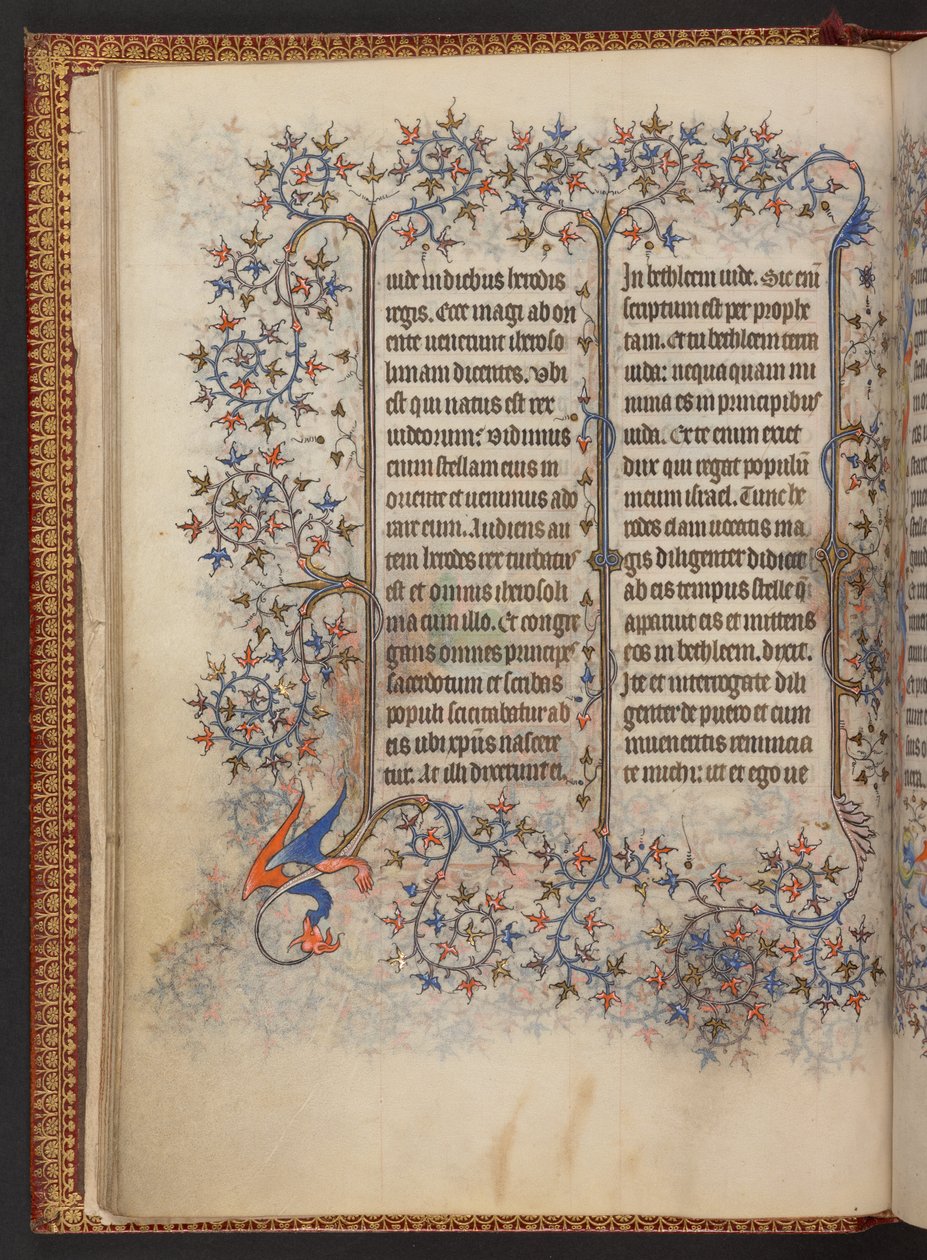 iude in diebus herodis
regis. Ecce magi ab ori
ente uenerunt iheroso
limam dicentes. Vbi
est qui natus est rex
iudeorum? Vidimus
enim stellam eius in
oriente et uenimus ado
rare eum. Audiens au
tem herodes rex turbatus
est et omnis iherosoli
ma cum illo. Et congre
gans omnes principes
sacerdotum et scribas
populi sciscitabatur ab
eis ubi xp̄us nascere
tur. At illi dixerunt ei.
In bethleem iude. Sic eni̅
scriptum est per prophe
tam. Et tu bethleem terra
iuda: nequaquam mi
nima es in principibus
iuda. Ex te enim exiet
dux qui regat populu̅
meum israel. Tunc he
rodes clam uocatis ma
gis diligenter didicit
ab eis tempus stelle q̅
apparuit eis et mittens
eos in bethleem. dixit.
Ite et interrogate dili
genter de puero et cum
inueneritis renuncia
te michi: ut et ego ue